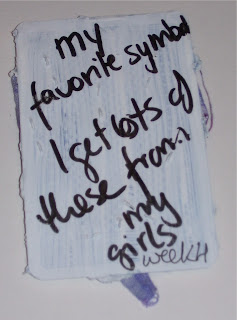 my
favorite symbol
I get lots of
these from
my
girls
week 14